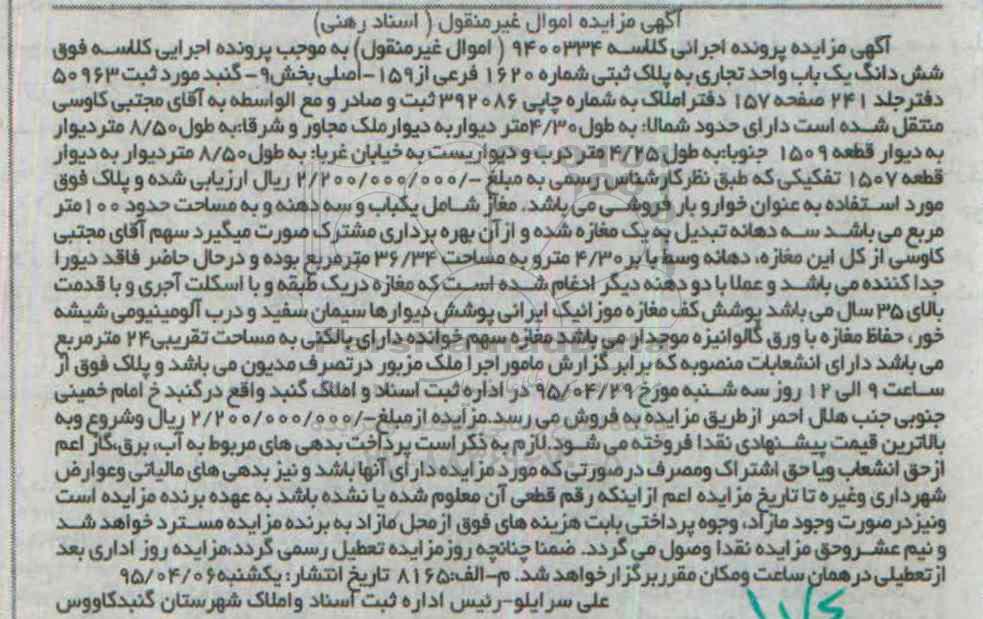 آگهی مزایده اموال غیرمنقول ( اسناد رهنی)
آگهی مزایده پرونده اجرائی کلاسه ۹۴۰۰۳۳۴ ( اموال غیرمنقول) به موجب پرونده اجرایی کلاسه فوق
شش دانگ یک باب واحد تجاری به پلاک ثبتی شماره ۱۶۲۰ فرعی از۱۵۹-اصلی بخش۹- گنبد مورد ثبت ۵۰۹۶۳
دفترجلد ۲۴۱ صفحه ۱۵۷ دفتر املاک به شماره چاپی ۳۹۲۰۸۶ ثبت و صادر و مع الواسطه به آقای مجتبی کاوسی
منتقل شده است دارای حدود شمالا: به طول۴/۳۰متر دیواربه دیوارملک مجاور و شرقا:به طول۸/۵۰ متردیوار
به دیوار قطعه ۱۵۰۹ جنوبا:به طول ۴/۲۵ متر درب و دیواریست به خیابان غربا: به طول۸/۵۰ متر دیوار به دیوار
قطعه ۱۵۰۷ تفکیکی که طبق نظرکارشناس رسمی به مبلغ -/۲/۲۰۰/۰۰۰/۰۰۰ ریال ارزیابی شده و پلاک فوق
مورد استفاده به عنوان خوارو بار فروشی می باشد. مغاز شامل یکباب و سه دهنه و به مساحت حدود ۱۰۰متر
مربع می باشد سه دهانه تبدیل به یک مغازه شده و ازآن بهره برداری مشترک صورت میگیرد سهم آقای مجتبی
کاوسی از کل این مغازه، دهانه وسط با بر ۴/۳۰ مترو به مساحت ۳۶/۳۴ مترمربع بوده و درحال حاضر فاقد دیورا
جدا کننده می باشد و عملا با دو دهنه دیگر ادغام شده است که مغازه دریک طبقه و با اسکلت آجری و با قدمت
بالای ۳۵ سال می باشد پوشش کف مغازه موزائیک ایرانی پوشش دیوارها سیمان سفید و درب آلومینیومی شیشه
خور، حفاظ مغازه با ورق گالوانیزه موجدار می باشد مغازه سهم خوانده دارای بالکنی به مساحت تقریبی۲۴ مترمربع
می باشد دارای انشعابات منصوبه که برابر گزارش مامور اجرا ملک مزبور درتصرف مدیون می باشد و پلاک فوق از
ساعت ۹ الی ۱۲ روز سه شنبه مورخ ۹۵/۰۴/۲۹ در اداره ثبت اسناد و املاک گنبد واقع درگنبد خ امام خمینی
جنوبی جنب هلال احمر ازطریق مزایده به فروش می رسد.مزایده ازمبلغ-/۲/۲۰۰/۰۰۰/۰۰۰ ریال وشروع وبه
بالاترین قیمت پیشنهادی نقدا فروخته می شود.لازم به ذکر است پرداخت بدهی های مربوط به آب، برق،گاز اعم
ازحق انشعاب ویا حق اشتراک ومصرف درصورتی که مورد مزایده دارای آنها باشد و نیز بدهی های مالیاتی وعوارض
شهرداری وغیره تا تاریخ مزایده اعم ازاینکه رقم قطعی آن معلوم شده یا نشده باشد به عهده برنده مزایده است
ونیزدرصورت وجود مازاد، وجوه پرداختی بابت هزینه های فوق ازمحل مازاد به برنده مزایده مسترد خواهد شد
و نیم عشروحق مزایده نقدا وصول می گردد. ضمنا چنانچه روزمزایده تعطیل رسمی گردد،مزایده روز اداری بعد
ازتعطیلی درهمان ساعت ومکان مقرربرگزارخواهد شد. م-الف:۸۱۶۵ تاریخ انتشار: یکشنبه۹۵/۰۴/۰۶
علی سرایلو-رئیس اداره ثبت اسناد واملاک شهرستان گنبدکاووس